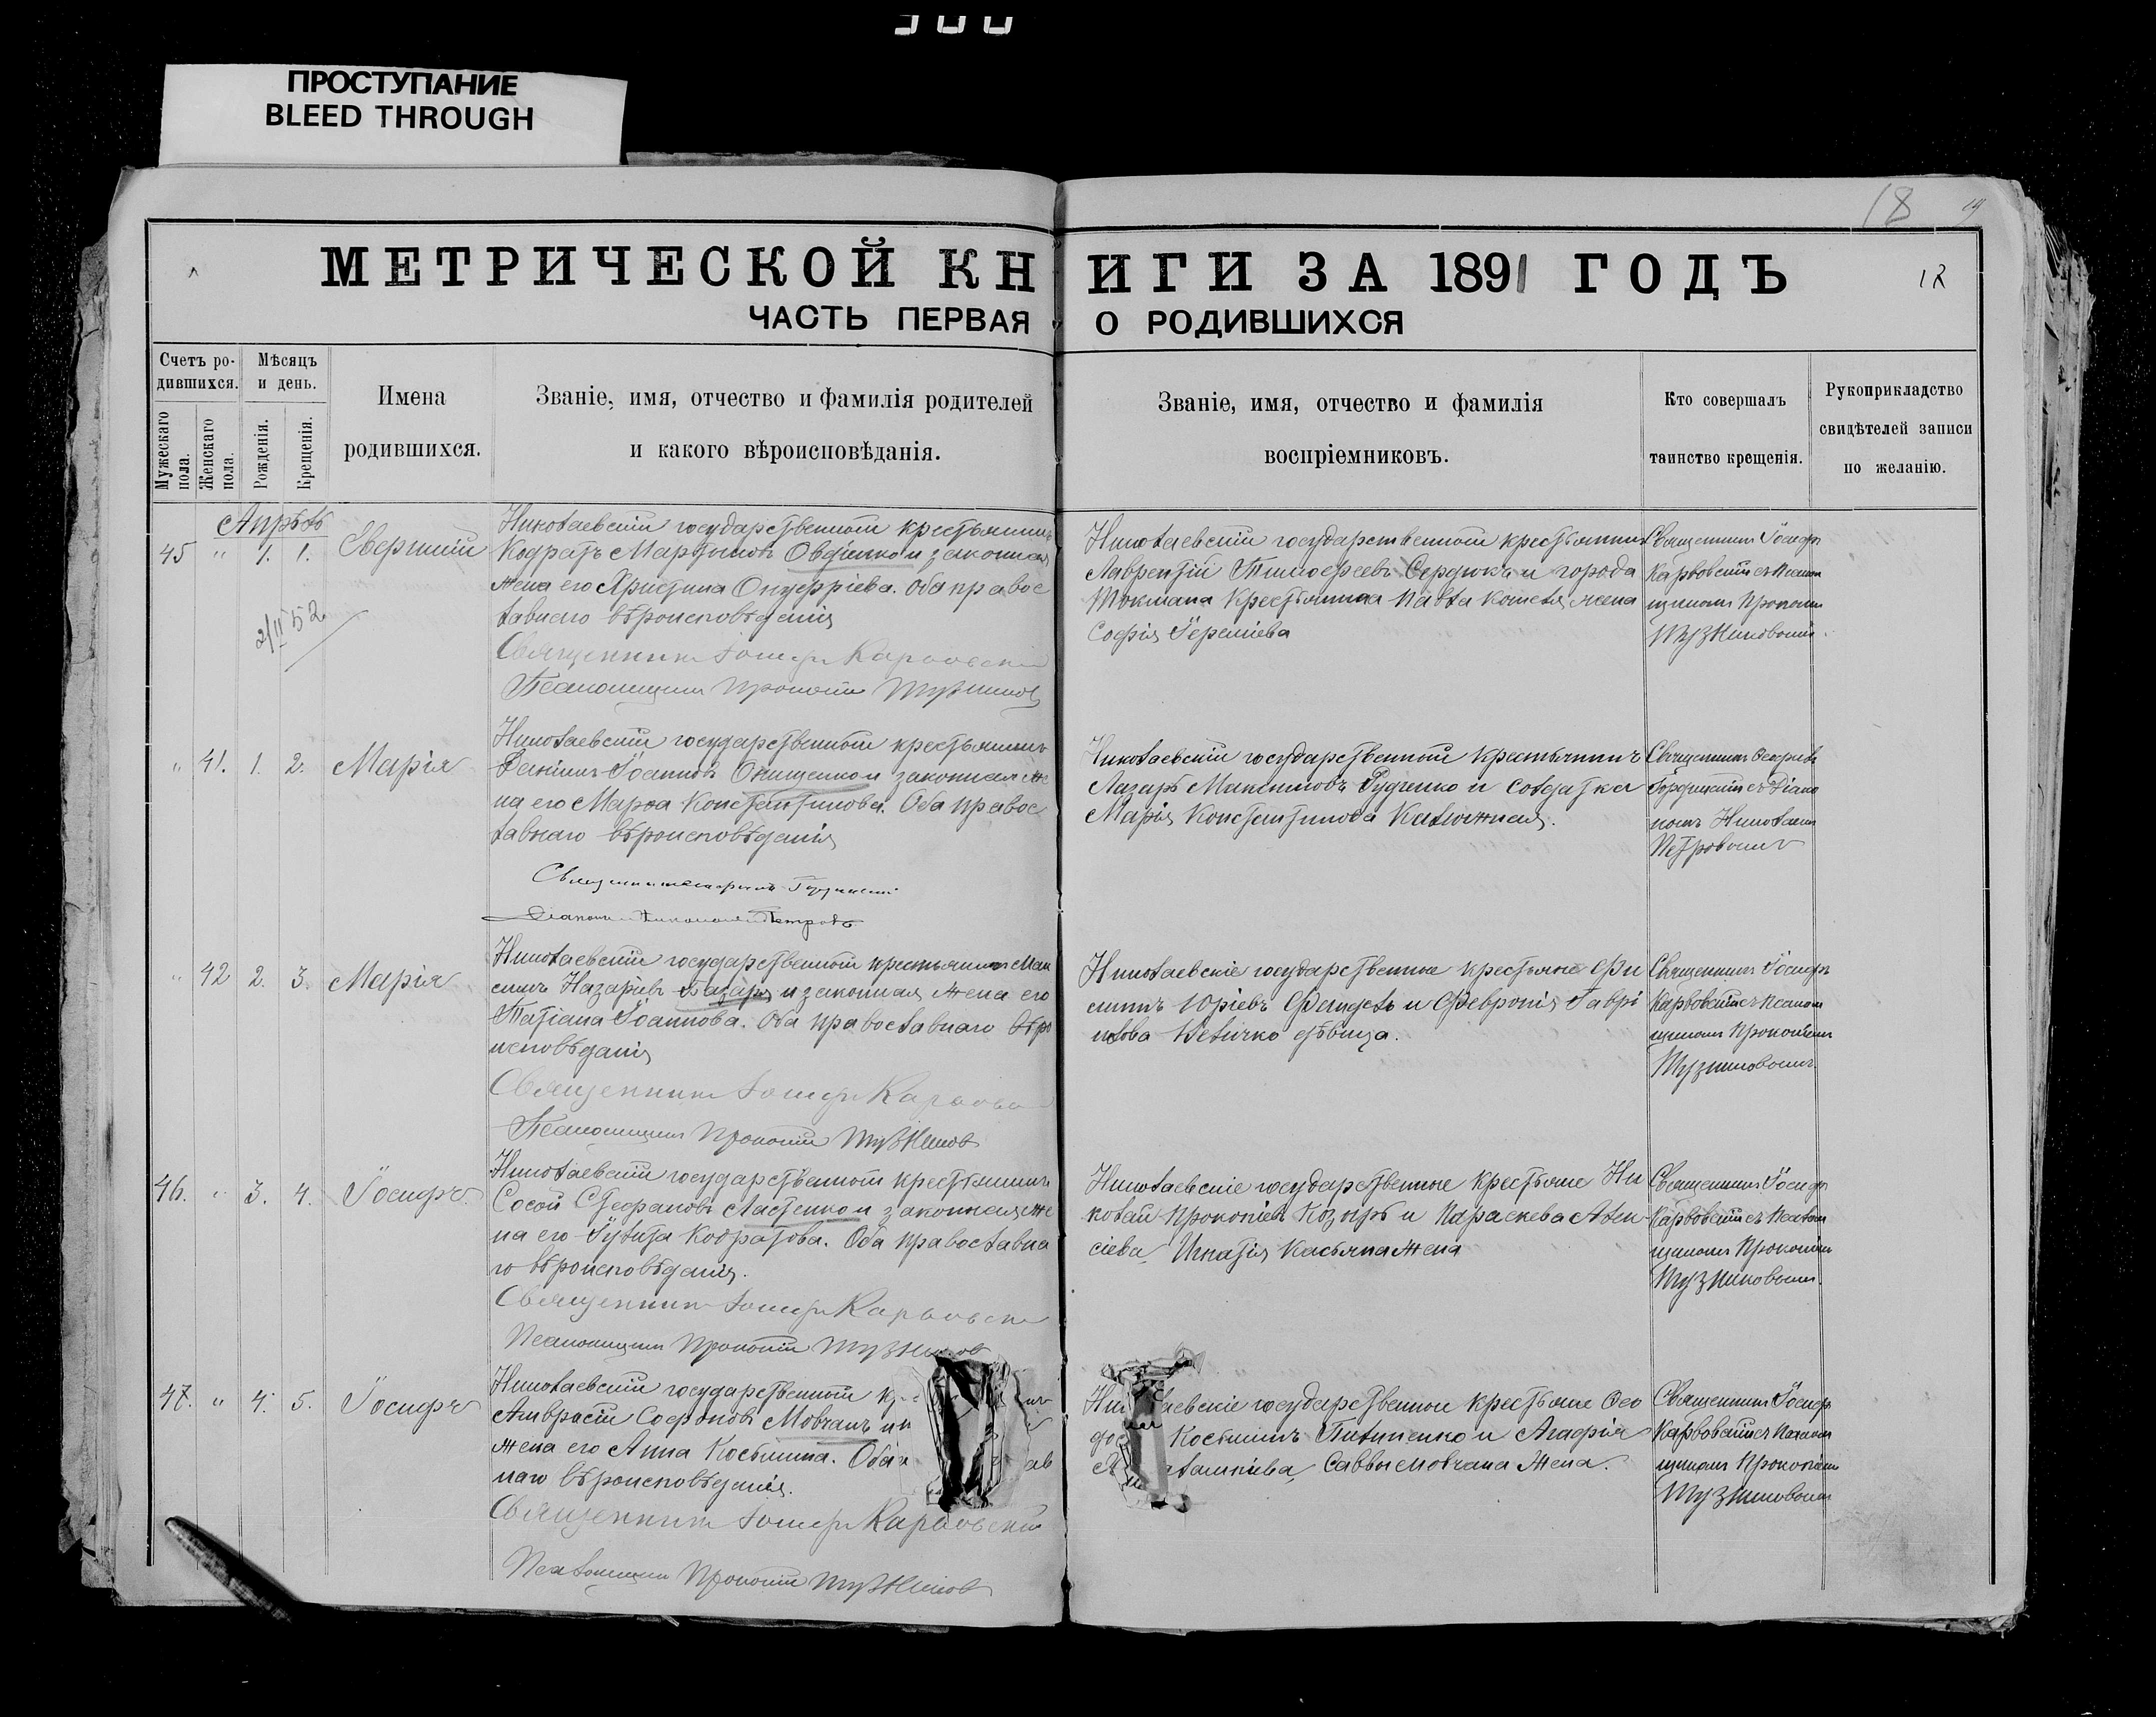 ПРОСТУПАНИЕ
BLEED THROUGH
18
19
МЕТРИЧЕСКОЙ КНИГИ ЗА 1891 ГОДЪ
12
ЧАСТЬ ПЕРВАЯ О РОДИВШИХСЯ
Счетъ родившихся.
Мужескаго пола.
Женскаго пола.
Мѣсяцъ и день.
Рожденія.
Крещенія.
Имена
родившихся.
Званіе, имя, отчество и фамилія родителей
и какого вѣроисповѣданія.
Званіе, имя, отчество и фамилія
воспріемниковъ.
Кто совершалъ
таинство крещенія.
Рукоприкладство
свидѣтелей записи
по желанію.
Апрѣль
45 " 1. 1.
Николаевскій государственный крестьянинъ
Кодратъ Мартыновъ Овдіенко и законная
жена его Христина Онуфріева. Оба правос
лавнаго вѣроисповѣданія
Священникъ Іосифъ Карвовскій
Псаломщикъ Прокопій
Николаевскій государственный крестьянинъ
Лаврентій Тимофеевъ Сердюкъ и города
Токмака крестьянина Павла жена
Софія
Священникъ Іосифъ
Карвовскій съ псалом
щикомъ Прокопіем
" 41. 1. 2. Марія
Николаевскій государственный крестьянинъ
Іоанновъ Онищенко и законная же
на его Марѳа Константинова. Оба правос
лавнаго вѣроисповѣданія
Священникъ
Діаконъ Николай Петровъ
Николаевскій государственный крестьянинъ
Лазарь Максимовъ Рудченко и солдатка
Марія Константинова Калюжная.
Священникъ
съ Діако
номъ Николаем
Петровымъ
" 42 2. 3. Марія
Николаевскій государственный крестьянинъ Мак
симъ Назаріевъ и законная жена его
Татіана Іоаннова. Оба православнаго вѣро
исповѣданія
Священникъ Іосифъ Карвовскій
Псаломщикъ Прокопій
Николаевскіе государственные крестьяне Фи
Юріевъ и Февронія Гаврі
илова Величко дѣвица.
Священникъ Іосифъ
Карвовскій съ псалом
щикомъ Прокопіемъ
46. " 3. 4. Іосифъ
Николаевскій государственный крестьянинъ
Сосой Стефановъ Ластенко и законная же
на его Іулита Кодратова. Оба православна
го вѣроисповѣданія.
Священникъ Іосифъ Карвовскій
Псаломщикъ Прокопій
Николаевскіе государственные крестьяне Ни
колай Прокопіевъ Козырь и Параскева Алек
сіева, Игнатія Касьяна жена
Священникъ Іосифъ
Карвовскій съ псалом
щикомъ Прокопіем
47. " 4. 5. Іосифъ
Николаевскій государственный
Амвросій Софроновъ Мовчанъ и
жена его Анна Косьмина. Оба
наго вѣроисповѣданія.
Священникъ Іосифъ Карвовскій
Псаломщикъ Прокопій
государственные крестьяне Ѳео
Косьминъ Пилипенко и Агафія
Саввы Мовчана жена.
Священникъ Іосифъ
Карвовскій съ псалом
щикомъ Прокопіем